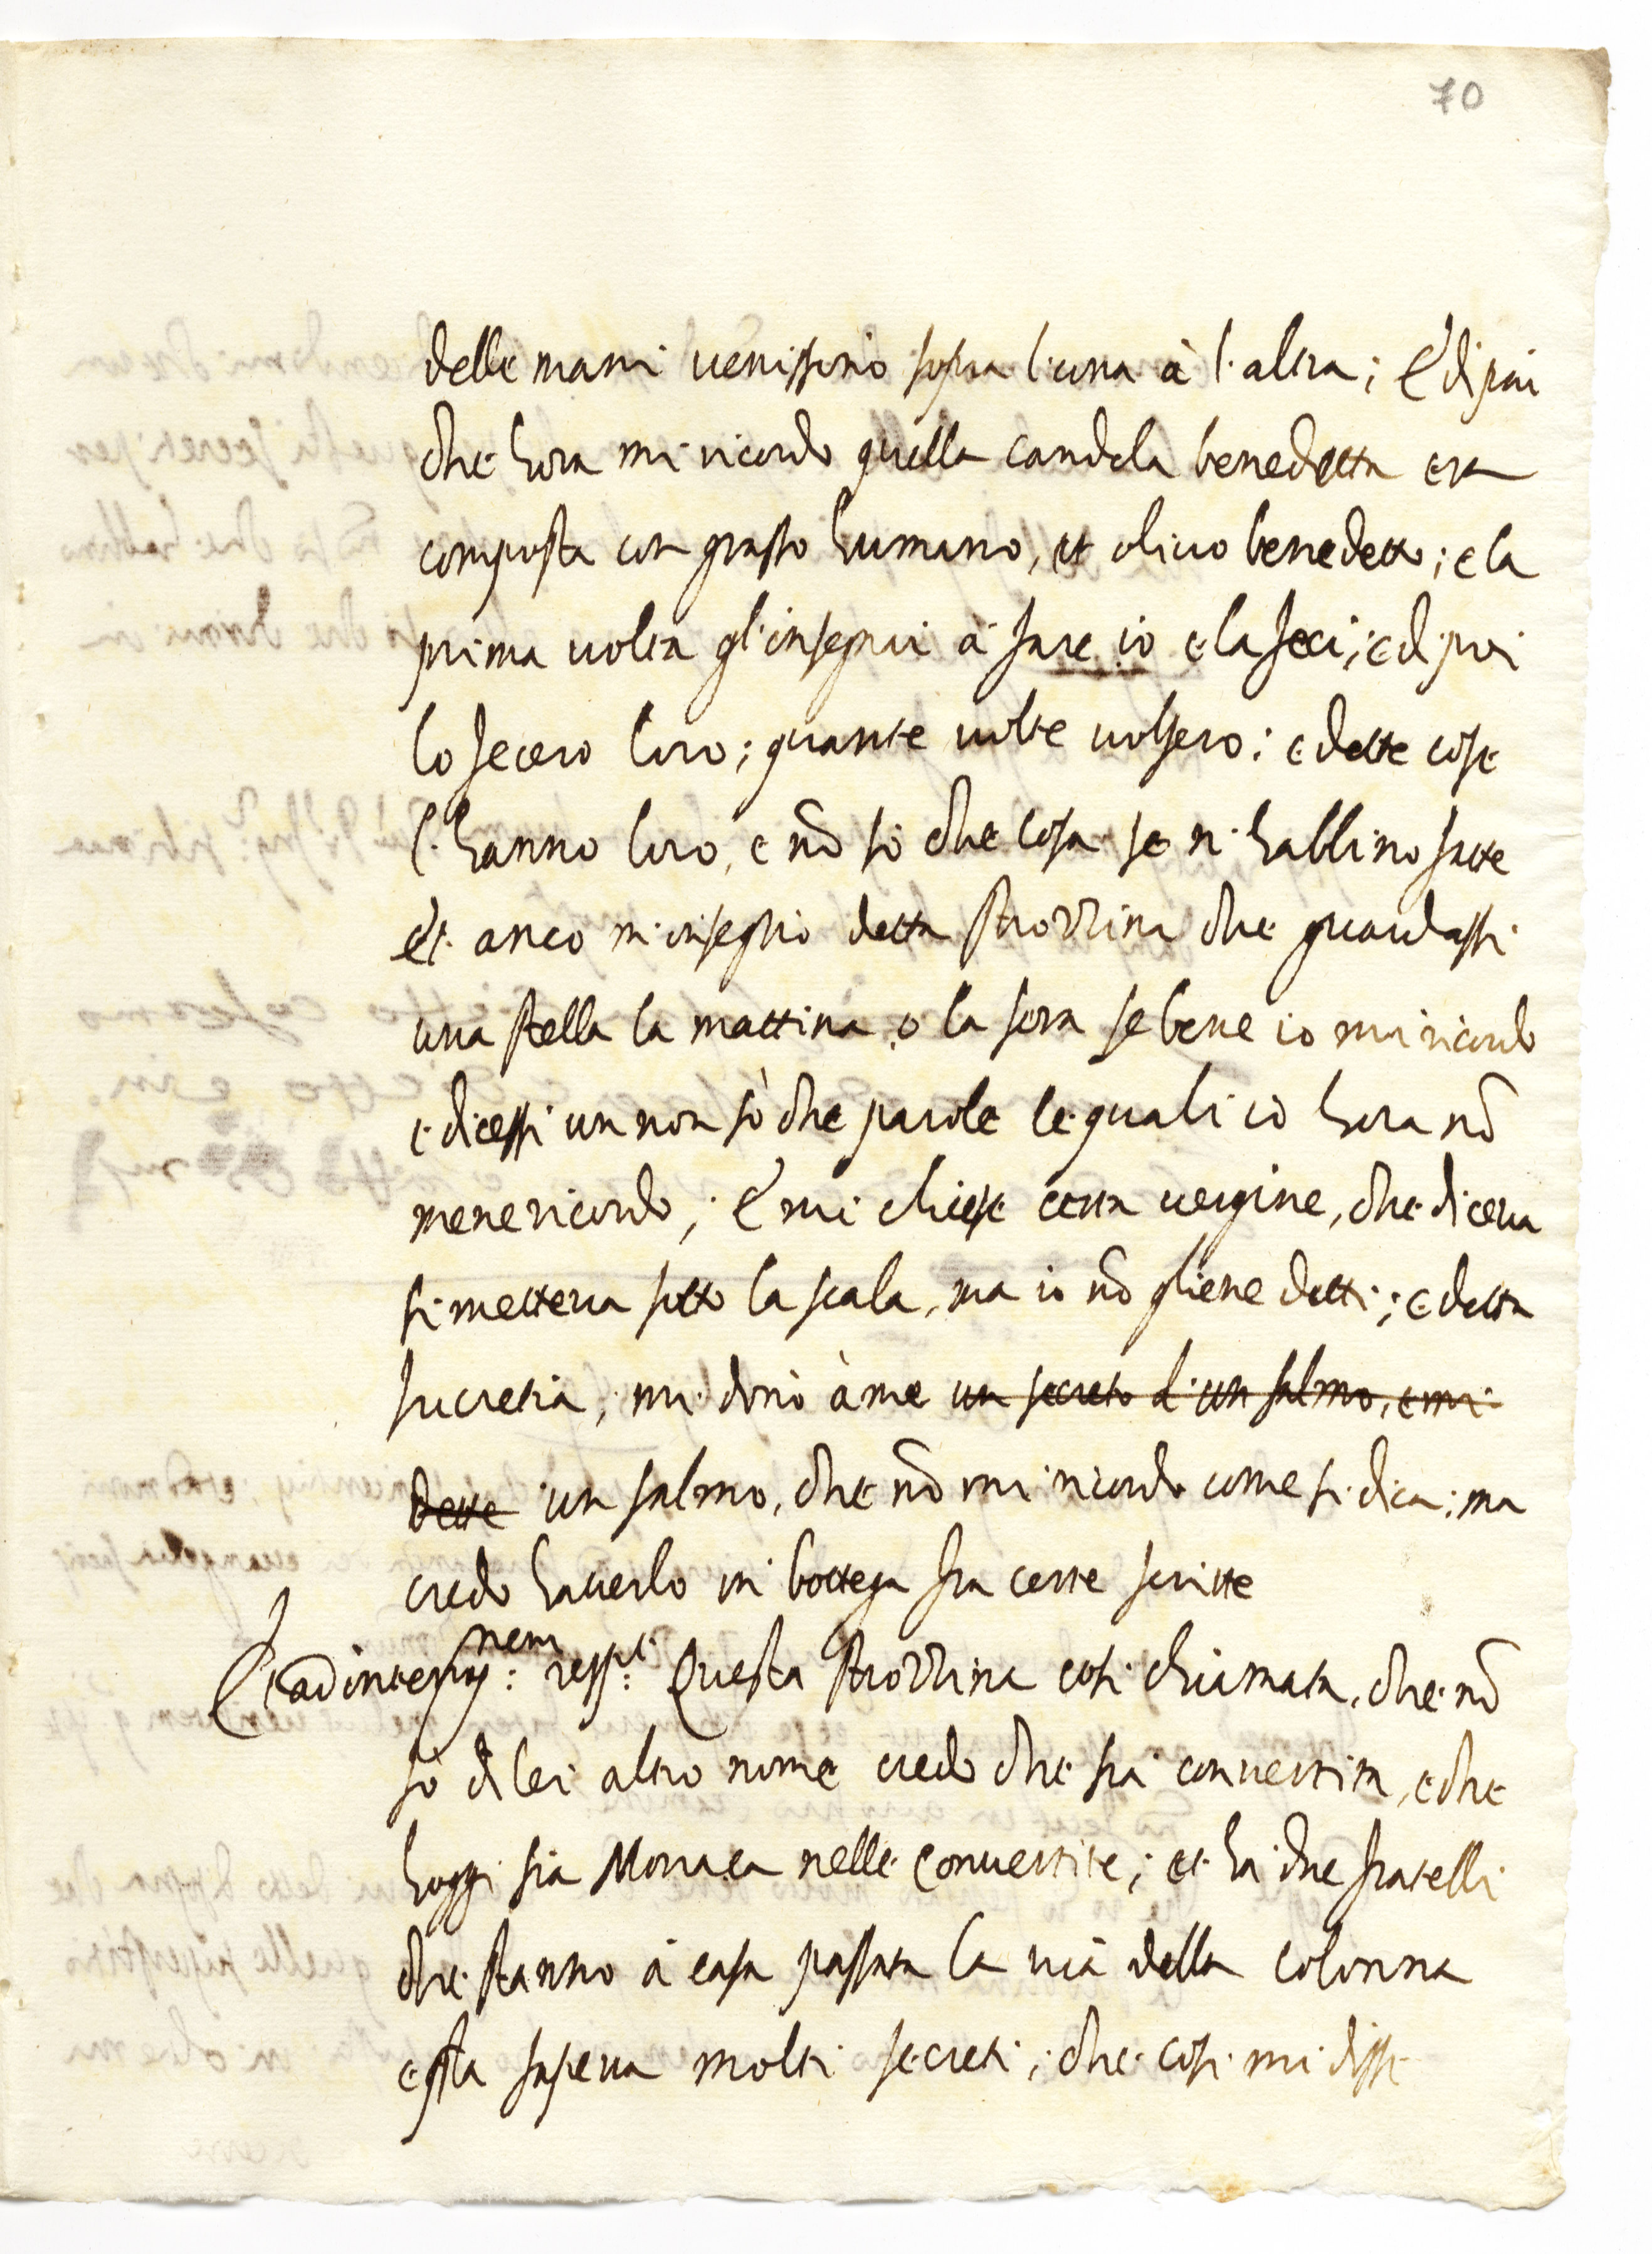 70
delle mani venissino sopra l'una à l'altra; E di poi
che hora mi ricordo quella candela benedetta era
composta con grasso humano, et olivo benedetto; e la
prima volta gl'insegnai à fare io e la feci; e di poi
lo fecero loro; quante volte volsero: e dette cose
l'hanno loro, e nõ so che cosa se n'habbino fatte
et anco m'insegnò detta Strozzina che guardassi
una stella la mattina o la sera se bene io mi ricordo
e dicessi un non sò che parole le quali io hora nõ
me ne ricordo; E mi chiese certa vergine, che diceva
si metteva sotto la scala, ma io nõ gliene detti; e detta
Lucretia, mi donò à me un secreto d'un salmo, e mi
dette un salmo, che nõ mi ricordo come si dica; ma
credo haverlo in bottega fra certe scritte
Et ad interrog:nem resp:t Questa Strozzina cosi chiamata, che nõ
so di lei altro nome credo che sia convertita, e che
hoggi sia Monaca nelle Convertite; et ha due fratelli
che stanno à casa passata la via della colonna
e sta sapeva molti secreti; che cosi mi disse